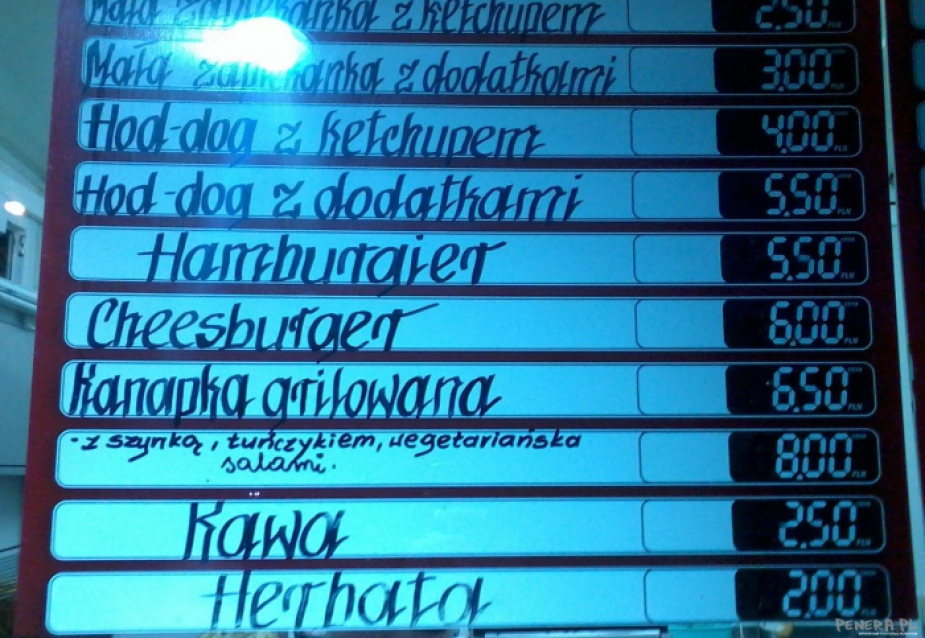 Mała zapiekanka z ketchupem 2.50
Mała zapiekanka z dodatkami 3.00 PLN
Hod-dog z ketchupem 4.00 PLN
Hod-dog z dodatkami 5.50 PLN
Hamburgier 5.50 PLN
Cheesburger 6.00 PLN
Kanapka grilowana 6.50 PLN
- z szynką, tuńczykiem, wegetariańska 8.00 PLN
salami.
Kawa 2.50 PLN
Herbata 2.00
PENERA.PL